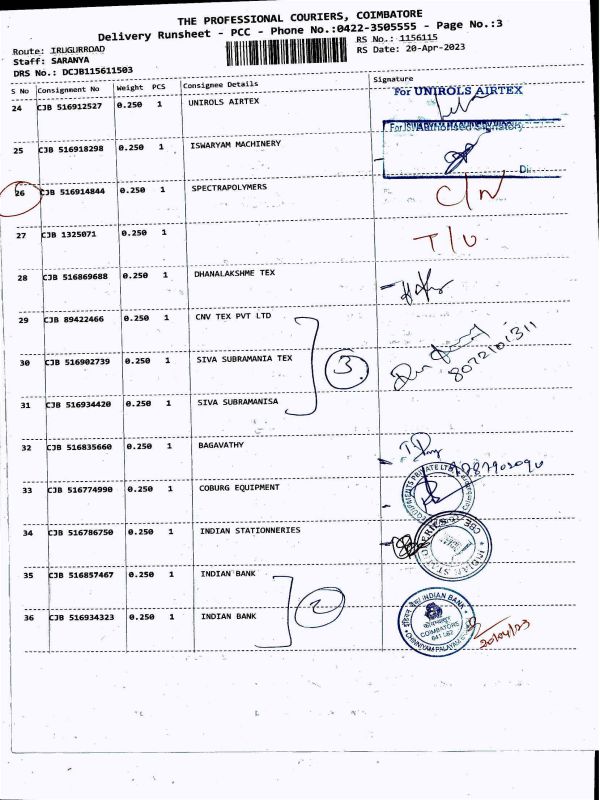 THE PROFESSIONAL COURIERS, COIMBATORE
Delivery Runsheet - PCC - Phone No.:0422-3505555 - Page No.:3
Route: IRUGURROAD
RS No.: 1156115
Staff: SARANYA
RS Date: 20-Apr-2023
DRS No.: DCJB115611503
S No Consignment No Weight PCS Consignee Details Signature
24 CJB 516912527 0.250 1 UNIROLS AIRTEX
For UNIROLS AIRTEX
Authorised Signatory
25 CJB 516918298 0.250 1 ISWARYAM MACHINERY
26 CJB 516914844 0.250 1 SPECTRAPOLYMERS C/N
27 CJB 1325071 0.250 1 T/U
28 CJB 516869688 0.250 1 DHANALAKSHME TEX
29 CJB 89422466 0.250 1 CNV TEX PVT LTD
30 CJB 516902739 0.250 1 SIVA SUBRAMANIA TEX 3
31 CJB 516934420 0.250 1 SIVA SUBRAMANISA
32 CJB 516835660 0.250 1 BAGAVATHY
33 CJB 516774990 0.250 1 COBURG EQUIPMENT
34 CJB 516786750 0.250 1 INDIAN STATIONNERIES
35 CJB 516857467 0.250 1 INDIAN BANK
36 CJB 516934323 0.250 1 INDIAN BANK 2
INDIAN BANK
COIMBATORE
20/04/23